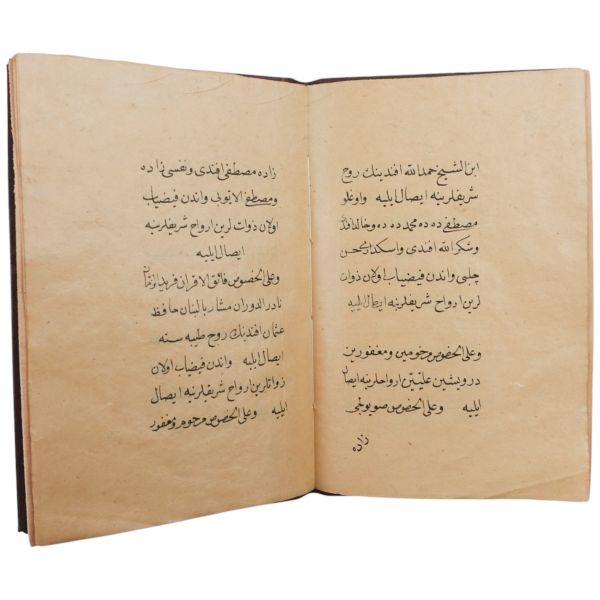 ابن الشيخ حمد الله افندينك روح
شريفلرينه ايصال ايليه واوغلو
مصطفى دده محمد دده وخالد افندى
وشكر الله افندى واسكدارى حسن
چلبى واندن فيضياب اولان ذوات
لرين ارواح شريفلرينه ايصال ايليه
وعلى الخصوص مرحومين ومغفورين
درويشين عليّين ارواحلرينه ايصال
ايليه وعلى الخصوص صويولجى
زاده
زاده مصطفى افندى ونفسى زاده
ومصطفى الايوبى واندن فيضياب
اولان ذوات لرين ارواح شريفلرينه
ايصال ايليه
وعلى الخصوص فائق الاقران فريد الزمان
نادر الدوران مشار بالبنان حافظ
عثمان افندينك روح طيبه سنه
ايصال ايليه واندن فيضياب اولان
ذواتلرين ارواح شريفلرينه ايصال
ايليه وعلى الخصوص مرحوم ومغفور